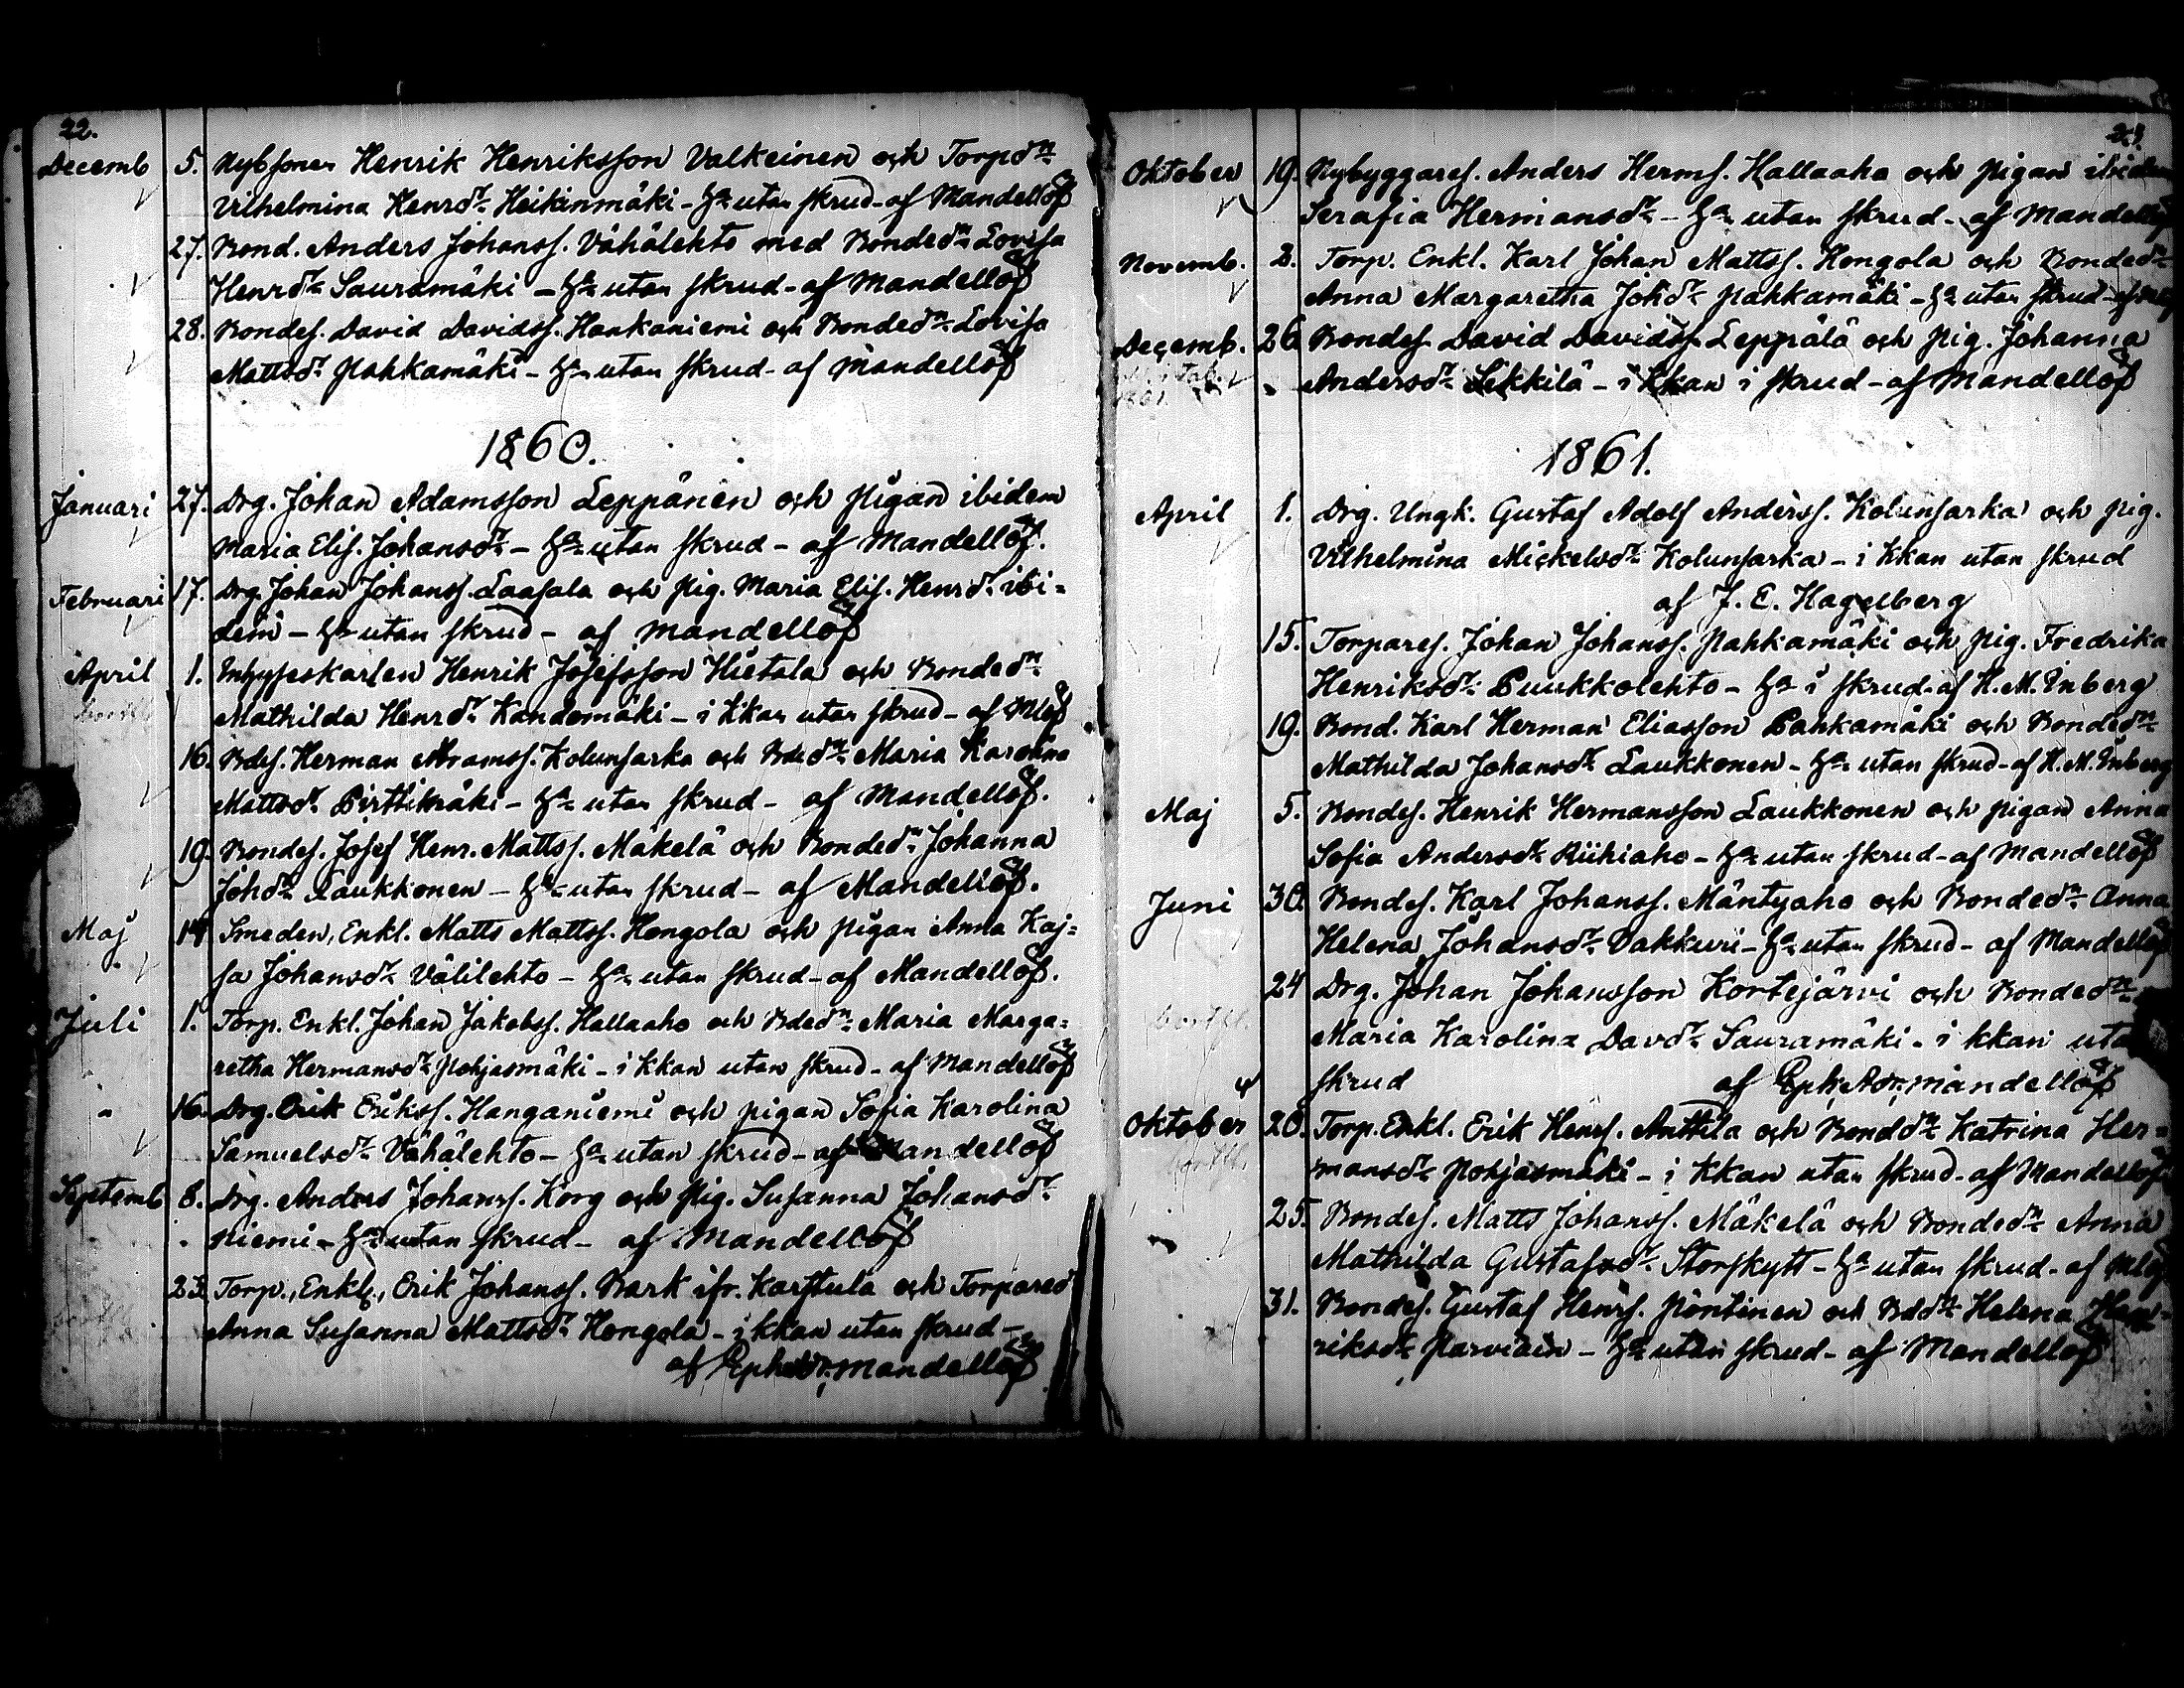 22.
Decemb 5. Nybsonen Henrik Henriksson Valkeinen och Torpdn
Vilhelmina Henrdr Heikinmäki - Ha utan skrud - af Mandellöf
27. Bond. Anders Johanss. Vähälehto med Bondedn Lovisa
Henrdr Sauramäki - Ha utan skrud - af Mandellöf
28. Bondes. David Davidss. Hankaniemi och Bondedn Lovisa
Mattsdr Pahkamäki - Ha utan skrud - af Mandellöf
1860.
Januari 27. Drg. Johan Adamsson Leppänen och Pigan ibidem
Maria Elis. Johansdr - Ha utan skrud - af Mandellöf.
Februari 17. Drg. Johan Johanss. Laasala och Pig. Maria Elis. Henrdr ibi=
dem - Ha utan skrud - af Mandellöf
April 1. Inhyseskarlen Henrik Josefsson Hietala och Bondedn
Mathilda Henrdr Kandomäki - i Kkan utan skrud - af Mlöf
16. Bdes. Herman Abramss. Kolunsarka och Bdedn Maria Karolina
Mattsdr Pirttimäki - Ha utan skrud - af Mandellöf.
19. Bondes. Josef Henr. Mattss. Mäkelä och Bondedn Johanna
Johdr Laukkonen - Ha utan skrud - af Mandellöf.
Maj 14 Smeden, Enkl. Matts Mattss. Hongola och Pigan Anna Kaj=
sa Johansdr Välilehto - Ha utan skrud - af Mandellöf.
Juli 1. Torp. Enkl. Johan Jakobss. Hallaaho och Bdedn Maria Marga=
retha Hermansdr Pohjasmäki - i Kkan utan skrud - af Mandellöf
" 16. Drg. Erik Erikss. Hanganiemi och pigan Sofia Karolina
Samuelsdr Vähälehto - Ha utan skrud - af Mandellöf
Septemb 8. Drg. Anders Johanss. Korg och Pig. Susanna Johansdr
Niemi - Ha utan skrud - af Mandellöf
23. Torp., Enkl., Erik Johanss. Bark ifr. Karstula och Torpared
Anna Susanna Mattsdr Hongola - i kkan utan skrud -
af Mandellöf
23.
Oktober 19. Nybyggares. Anders Herms. Hallaaho och Pigan ibidem
Serafia Hermansdr - Ha utan skrud - af Mandellöf
Novemb. 2. Torp. Enkl. Karl Johan Mattss. Hongola och Bondedr
Anna Margaretha Johdr Pahkamäki - Ha utan skrud - af
Decemb. 26 Bondes. David Davidss. Leppälä och Pig. Johanna
Andersdr Sikkilä - i Kkan i skrud - af Mandellöf
1861.
April 1. Drg. Ungk. Gustaf Adolf Anderss. Kolunsarka och Pig.
Vilhelmina Mickelsdr Kolunsarka - i Kkan utan skrud
af J. E. Hagelberg
15. Torpares. Johan Johanss. Pahkamäki och Pig. Fredrika
Henriksdr Puukkolehto - Ha i skrud - af H. M. Inberg
19. Bond. Karl Herman Eliasson Pahkamäki och Bondedn
Mathilda Johansdr Laukkonen - Ha utan skrud - af H. M. Inberg
Maj 5. Bondes. Henrik Hermansson Laukkonen och pigan Anna
Sofia Andersdr Riihiaho - Ha utan skrud - af Mandellöf
Juni 30. Bondes. Karl Johanss. Mäntyaho och Bondedn Anna
Helena Johansdr Vakkuri - Ha utan skrud - af Mandellöf
24 Drg. Johan Johansson Kortejärvi och Bondedn
Maria Karolina Davdr Sauramäki - i kkan utan
skrud af Mandellöf
Oktober 20. Torp. Enkl. Erik Henrs. Anttila och Bonddr Katrina Her=
mansdr Pohjasmäki - i Kkan utan skrud - af Mandellöf
25. Bondes. Matts Johanss. Mäkelä och Bondedn Anna
Mathilda Gustafsdr Storskytt - Ha utan skrud - af Mlöf
31. Bondes. Gustaf Henrs. Pöntinen och Bddr Helena Hen=
riksdr Parviain - Ha utan skrud - af Mandellöf